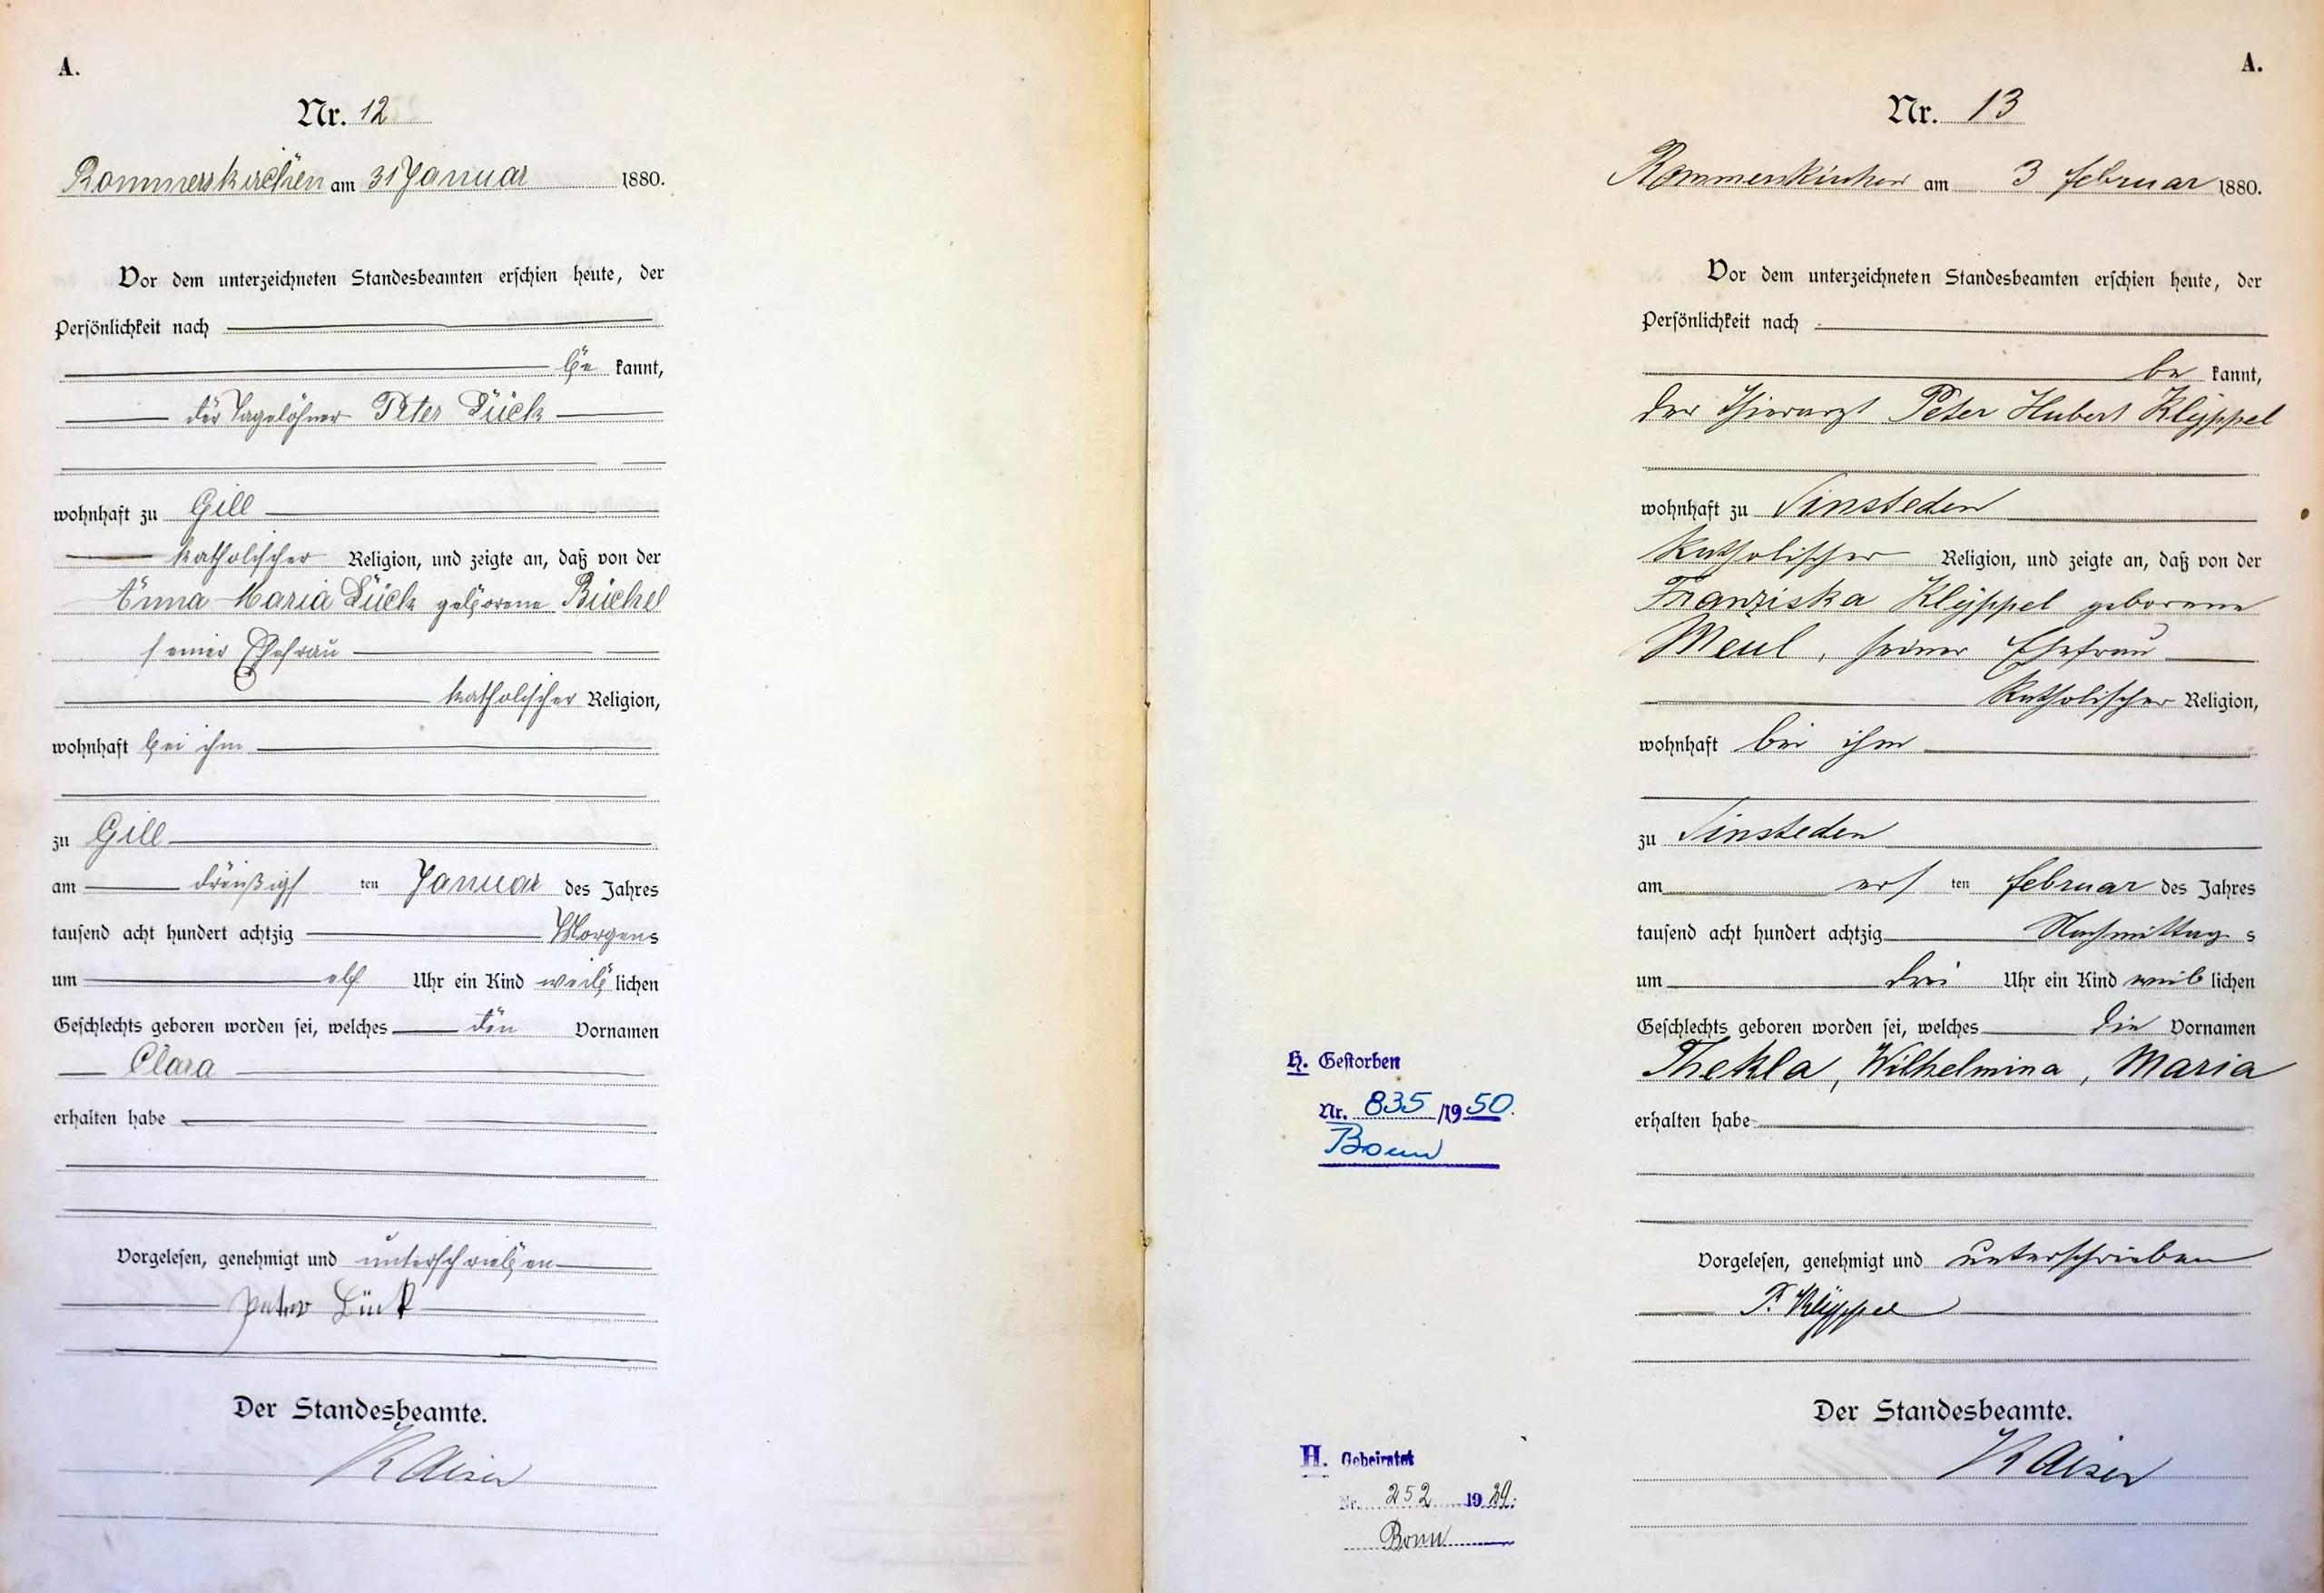 A.
Nr. 12
Rommerskirchen am 31 Januar 1880.
Vor dem unterzeichneten Standesbeamten erschien heute, der
Persönlichkeit nach
be kannt,
der Tagelöhner Peter Lück
wohnhaft zu Gill
katholischer Religion, und zeigte an, daß von der
Anna Maria Lück geborene Büchel
seiner Ehefrau
katholischer Religion,
wohnhaft bei ihm
zu Gill
am dreißigsten Januar des Jahres
tausend acht hundert achtzig Morgens
um elf Uhr ein Kind weiblichen
Geschlechts geboren worden sei, welches den Vornamen
Clara
erhalten habe
Vorgelesen, genehmigt und unterschrieben
Peter Lück
Der Standesbeamte.
Kaiser
A.
Nr. 13
Rommerskirchen am 3 Februar 1880.
Vor dem unterzeichneten Standesbeamten erschien heute, der
Persönlichkeit nach
be kannt,
der Thierarzt Peter Hubert Klÿppel
wohnhaft zu Sinsteden
katholischer Religion, und zeigte an, daß von der
Franziska Klÿppel geborene
Meul, seiner Ehefrau
katholischer Religion,
wohnhaft bei ihm
zu Sinsteden
am ersten Februar des Jahres
tausend acht hundert achtzig Nachmittags
um drei Uhr ein Kind weiblichen
Geschlechts geboren worden sei, welches die Vornamen
Thekla, Wilhelmina, Maria
erhalten habe
Vorgelesen, genehmigt und unterschrieben
P. Klÿppel
Der Standesbeamte.
Kaiser
H. Gestorben
Nr. 835/1950.
Bonn
H. Geheiratet
Nr. 252 1929.
Bonn